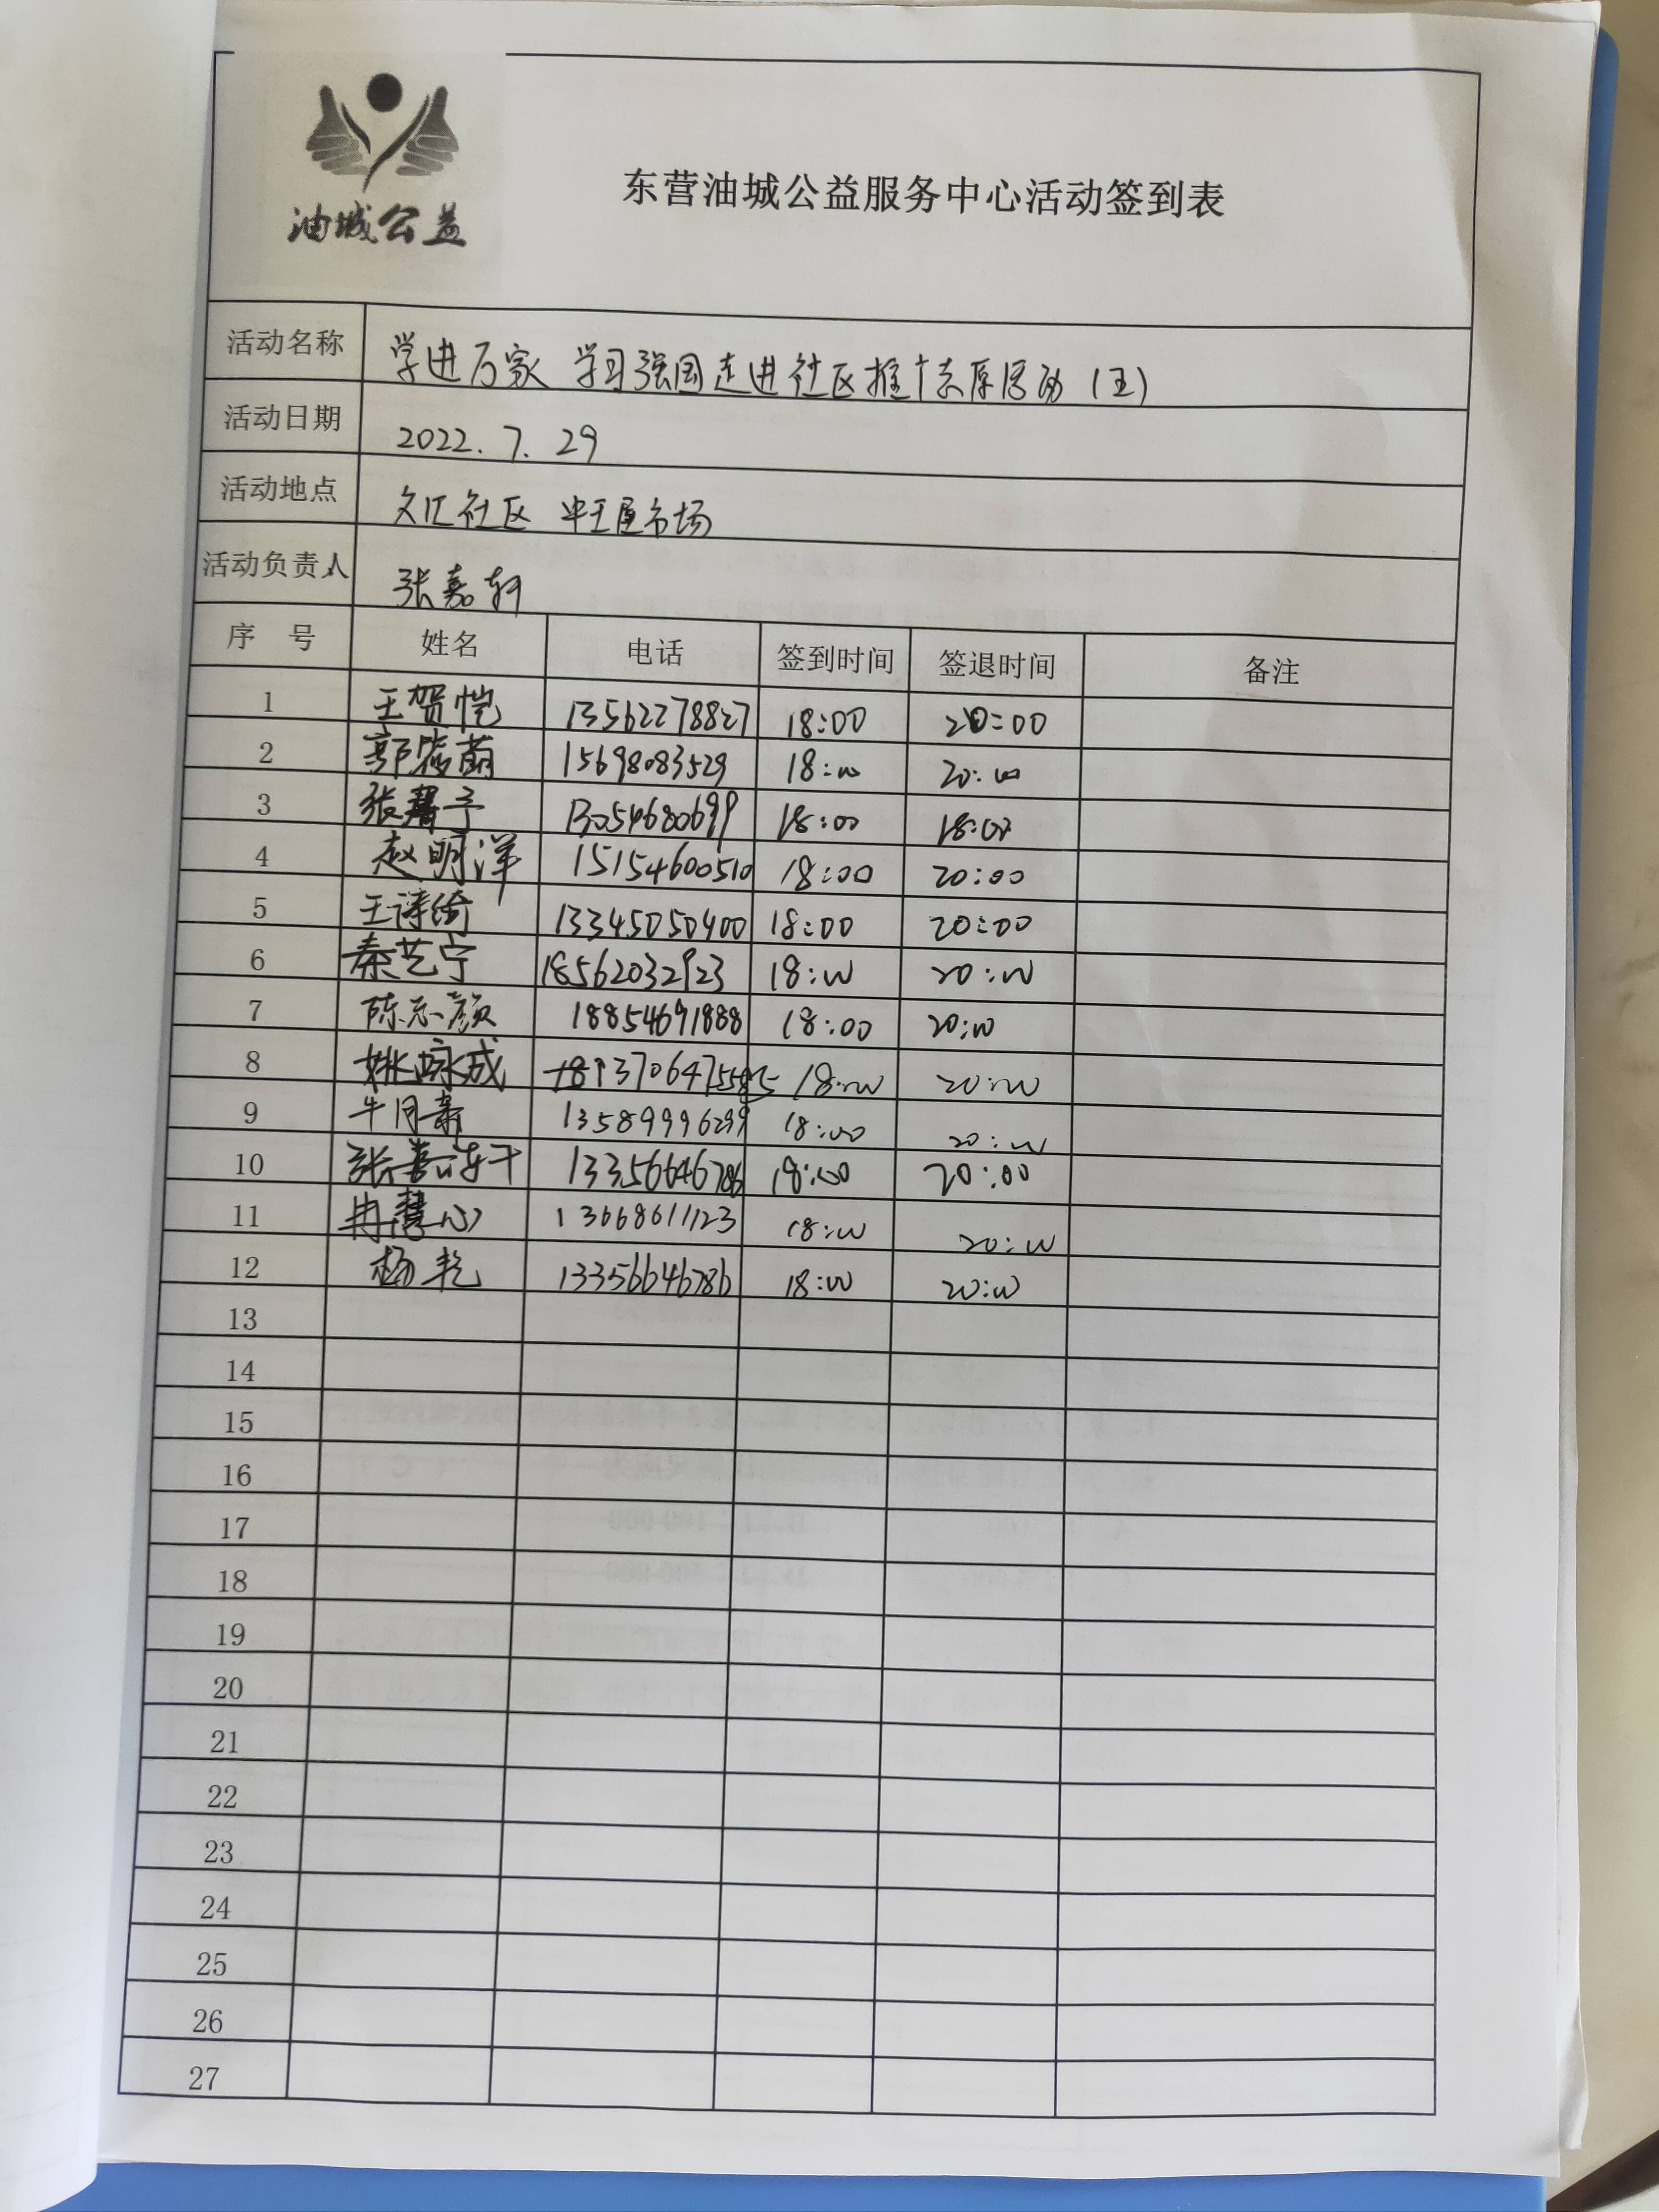 油城公益
东营油城公益服务中心活动签到表
活动名称 学进万家 学习强国走进社区推广志愿活动(五)
活动日期 2022.7.29
活动地点 文汇社区 中王屋市场
活动负责人 张嘉轩
序号 姓名 电话 签到时间 签退时间 备注
1 王贺恺 13562278827 18:00 20:00
2 郭筱萌 15698083529 18:00 20:00
3 张 予 13054680699 18:00 18:00
4 赵明洋 15154600510 18:00 20:00
5 王诗绮 13345050400 18:00 20:00
6 秦艺宁 18562032923 18:00 20:00
7 陈 颜 18854691888 18:00 20:00
8 姚咏成 18:00 20:00
9 牛月 13589996299 18:00 20:00
10 张嘉轩 13356646786 18:00 20:00
11 冉慧心 13668611123 18:00 20:00
12 杨乾 13356646786 18:00 20:00
13
14
15
16
17
18
19
20
21
22
23
24
25
26
27